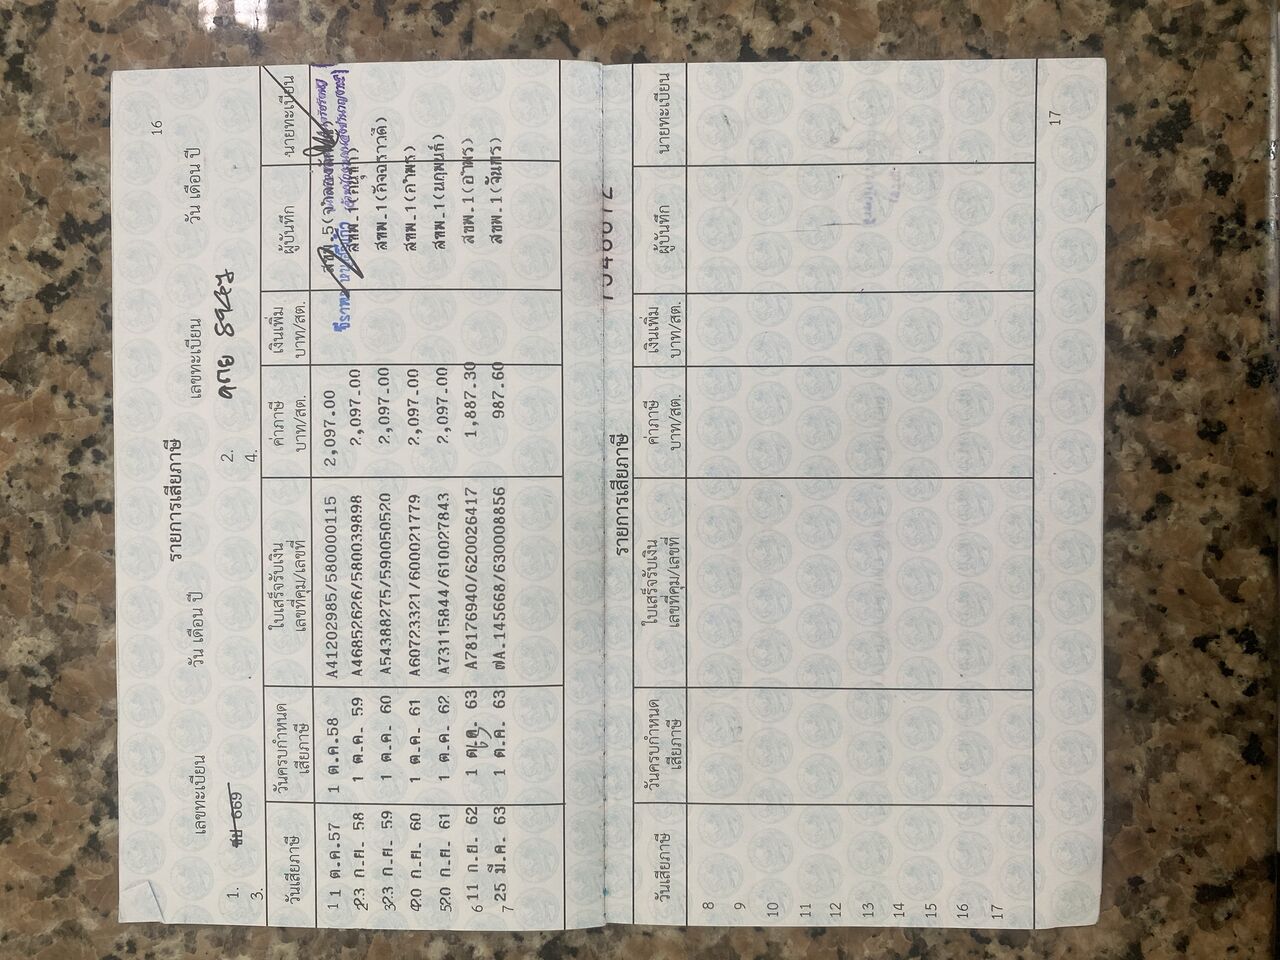 16
รายการเสียภาษี
เลขทะเบียน วัน เดือน ปี เลขทะเบียน วัน เดือน ปี
1. 669 2.
3. 4.
วันเสียภาษี วันครบกำหนดเสียภาษี ใบเสร็จรับเงิน เลขที่คุม/เลขที่ ค่าภาษี บาท/สต. เงินเพิ่ม บาท/สต. ผู้บันทึก นายทะเบียน
1 1 ต.ค.57 1 ต.ค.58 A41202985/580000115 2,097.00
2 23 ก.ย. 58 1 ต.ค. 59 A46852626/580039898 2,097.00 สขพ.1
3 23 ก.ย. 59 1 ต.ค. 60 A54388275/590050520 2,097.00 สขพ.1(กัจฉราวดี)
4 20 ก.ย. 60 1 ต.ค. 61 A60723321/600021779 2,097.00 สขพ.1(อำพร)
5 20 ก.ย. 61 1 ต.ค. 62 A73115844/610027843 2,097.00 สขพ.1(นฤพนธ์)
6 11 ก.ย. 62 1 ต.ค. 63 A78176940/620026417 1,887.30 สขพ.1(อำพร)
7 25 มี.ค. 63 1 ต.ค. 63 7A-145668/630008856 987.60 สขพ.1(จันทร)
รายการเสียภาษี
วันเสียภาษี วันครบกำหนดเสียภาษี ใบเสร็จรับเงิน เลขที่คุม/เลขที่ ค่าภาษี บาท/สต. เงินเพิ่ม บาท/สต. ผู้บันทึก นายทะเบียน
8
9
10
11
12
13
14
15
16
17
17